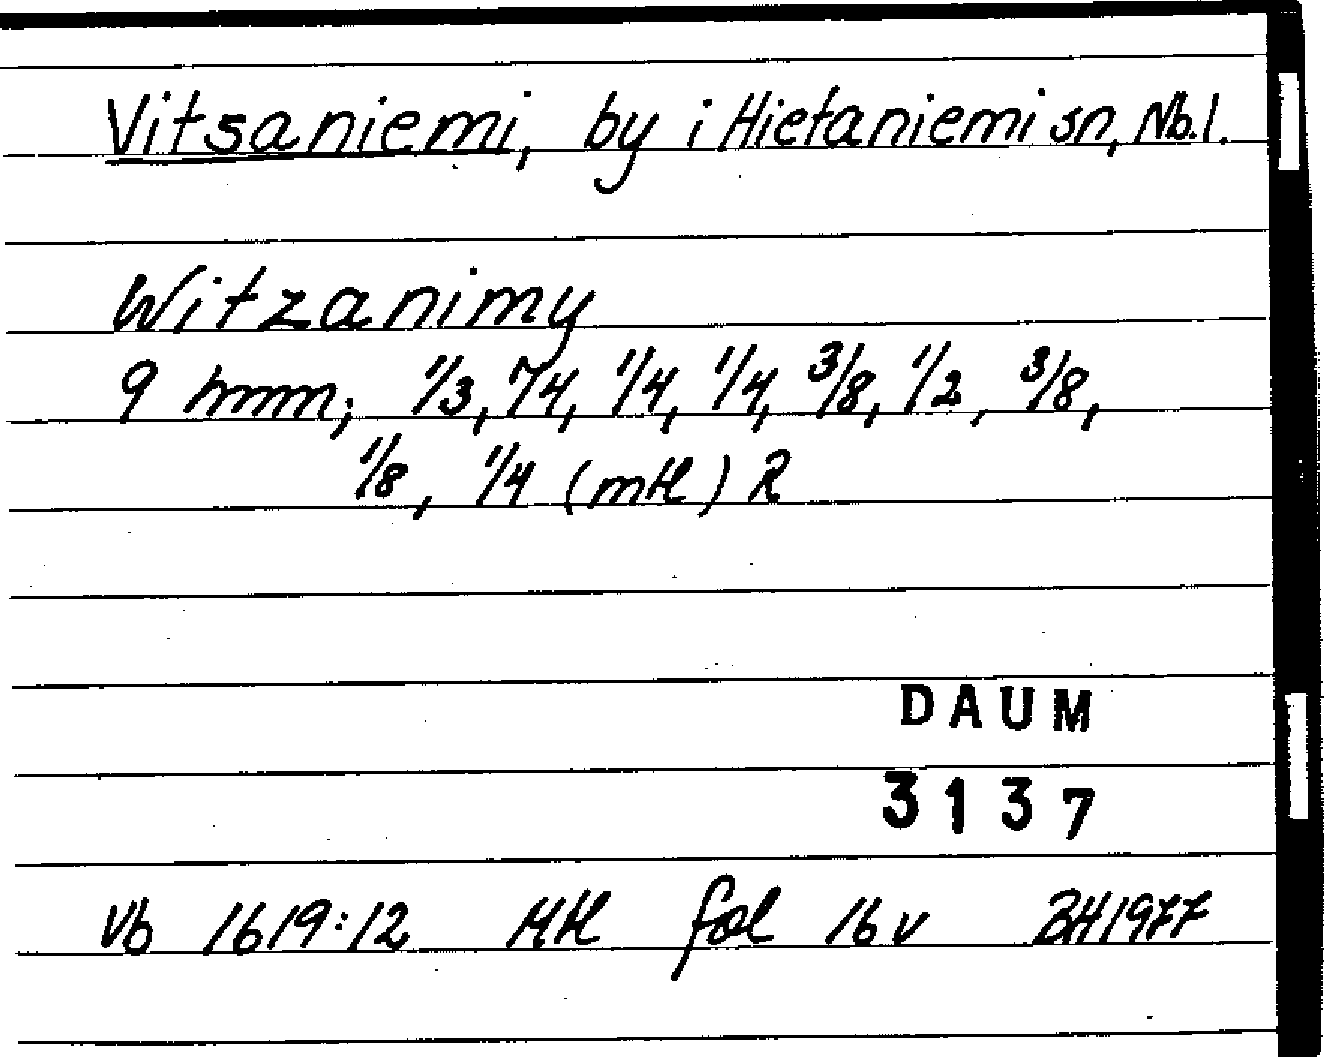 Vitsaniemi, by i Hietaniemi sn, Nb.l.
Witzanimy
9 hmm; 1/3, 7/4, 1/4, 1/4, 3/8, 1/2, 3/8,
1/8, 1/4 (mtl) R
DAUM
3137
Vb 1619:12 Mtl fol 16 v BH1977